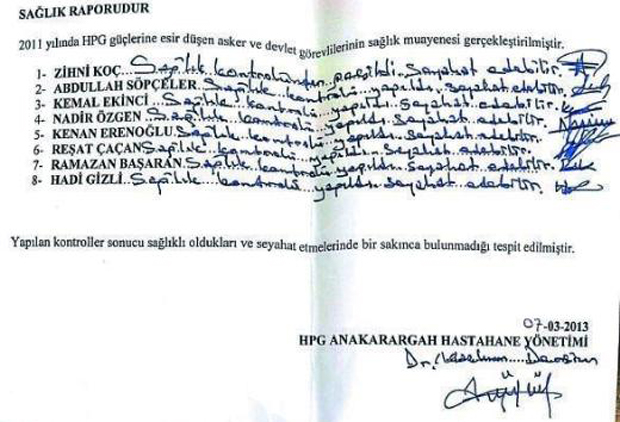 SAĞLIK RAPORUDUR
2011 yılında HPG güçlerine esir düşen asker ve devlet görevlilerinin sağlık muayenesi gerçekleştirilmiştir.
1- ZİHNİ KOÇ...Sağlık kontrolünden geçirildi. Seyahat edebilir.
2- ABDULLAH SÖPÇELER..Sağlık kontrolü yapıldı. Seyahat edebilir.
3- KEMAL EKİNCİ...Sağlık kontrolü yapıldı. Seyahat edebilir.
4- NADİR ÖZGEN...Sağlık kontrolü yapıldı. Seyahat edebilir.
5- KENAN ERENOĞLU.Sağlık kontrolü yapıldı. Seyahat edebilir.
6- REŞAT ÇAÇAN Sağlık kontrolü yapıldı. Seyahat edebilir.
7- RAMAZAN BAŞARAN.Sağlık kontrolü yapıldı. Seyahat edebilir.
8- HADİ GİZLİ...Sağlık kontrolü yapıldı. Seyahat edebilir.
Yapılan kontroller sonucu sağlıklı oldukları ve seyahat etmelerinde bir sakınca bulunmadığı tespit edilmiştir.
07-03-2013
HPG ANAKARARGAH HASTAHANE YÖNETİMİ
Dr.